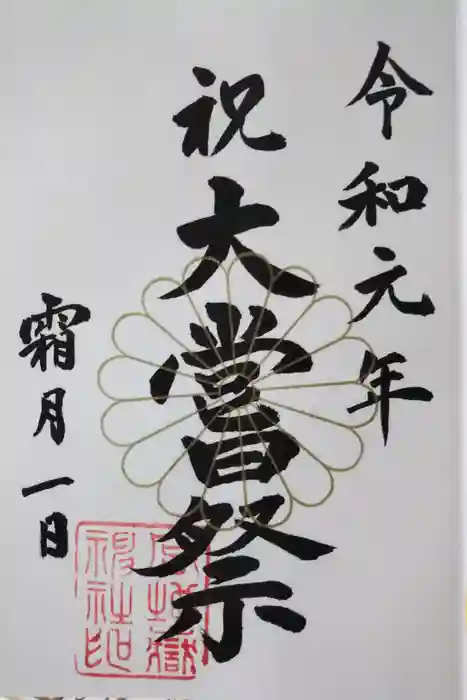 令和元年
祝
大嘗祭
霜月一日